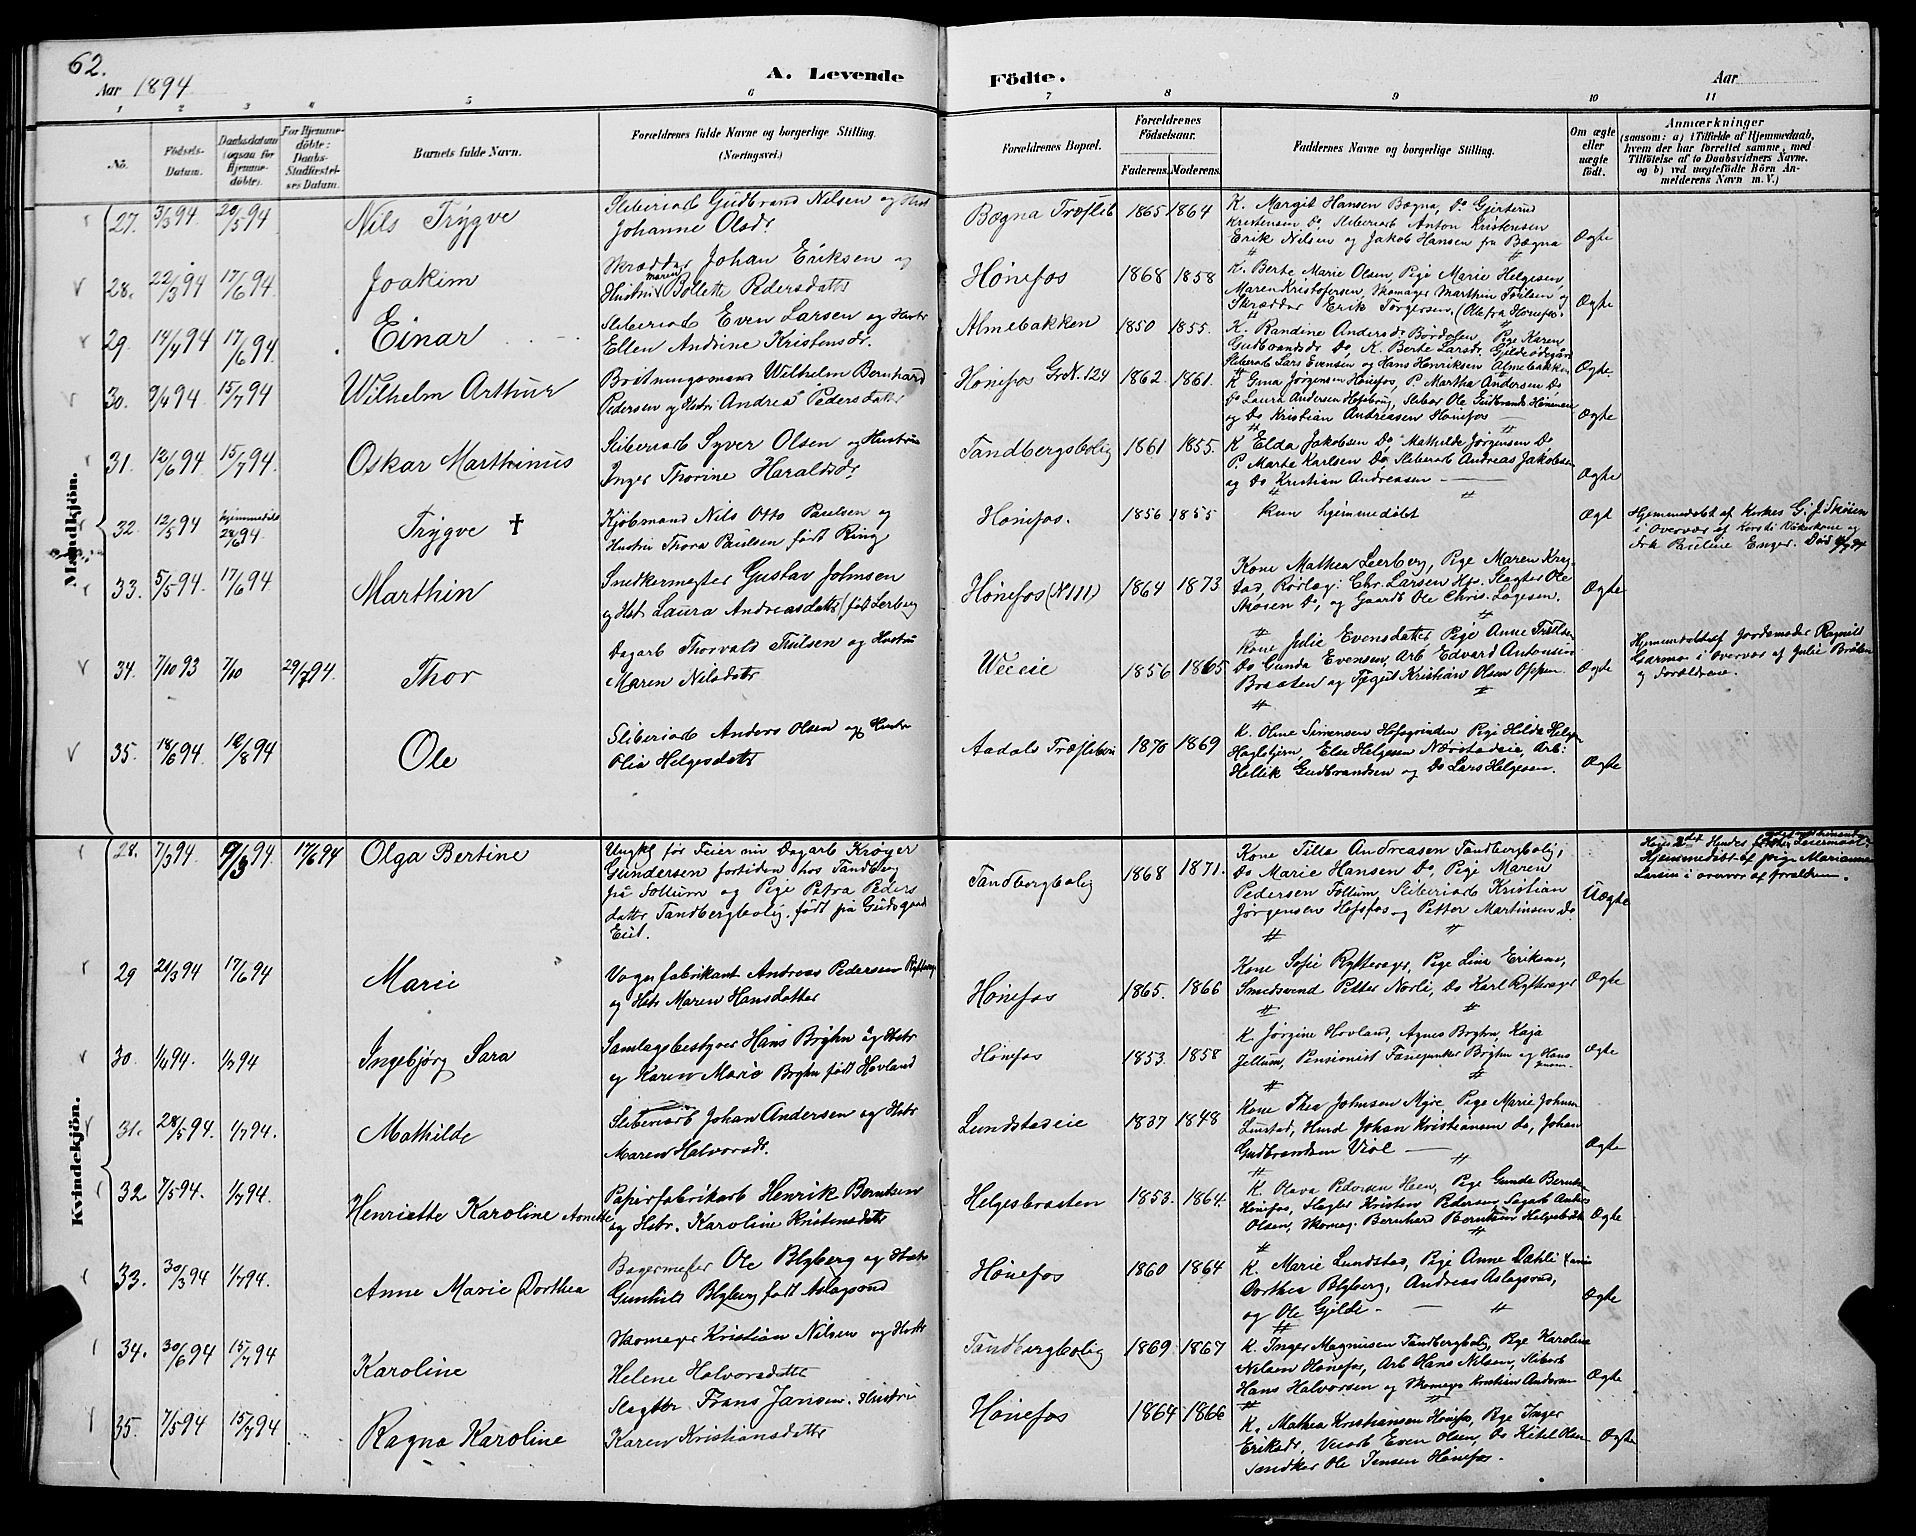 62.
Aar 1894
A. Levende
Födte.
Aar
1 2 3 4 5 6 7 8 9 10 11
No.
Födsels-
Datum.
Daabsdatum
(ogsaa for
Hjemme-
döbte).
For Hjemme-
döbte:
Daabs-
Stadfæstel-
ses Datum.
Barnets fulde Navn.
Forældrenes fulde Navne og borgerlige Stilling.
(Næringsvei.)
Forældrenes Bopæl.
Forældrenes
Födselsaar.
Faderens. Moderens.
Faddernes Navne og borgerlige Stilling.
Om ægte
eller
uægte
födt.
Anmærkninger
(saasom: a) i Tilfælde af Hjemmedaab,
hvem der har forrettet samme, med
Tilföielse af to Daabsvidners Navne,
og b) ved uægtefödte Börn An-
melderens Navn m. V.)
Mandkjön.
27. 3/3 94 20/5 94 Nils Trygve
Sliberiarb Gudbrand Nilsen og Hust
Johanne Olsdr
Bægna Træslib 1865 1864
K. Margit Hansen Bægna, Do Gjertrud
Kristensen Do, Sliberiarb Anton Kristensen
Erik Nilsen og Jakob Hansen fra Bægna
Ægte
28. 22/3 94 17/6 94. Joakim
Skrædder Johan Eriksen og
Hustru Maren Bollette Pedersdatter
Hönefos 1868 1858
K. Berte Marie Olsen, Pige Marie Helgesen,
Maren Kristofersen, Skomager Marthin og
Skrædder Erik Torgersen. (Ole fra Hönefos.
Ægte
29. 14/4 94 17/6 94. Einar
Sliberiarb Even Larsen og Hustr
Ellen Andrine Kristensdr.
Almebakken 1850 1855.
K. Randine Andersdr Børdalen, Pige Karen
Gudbrandsdr Do, K. Berte Larsdr Gjeldeødegård
Sliberarb Lars Evensen og Hans Henriksen Almebakken
Ægte
30. 9/4 94 15/7 94 Wilhelm Arthur
Bestningsmand Wilhelm Bernhard
Pedersen og Hstr Andrea Pedersdatter
Hönefos GrN. 124 1862. 1861.
K Gina Jørgensen Hönefos, P. Martha Andersen Do
Do Laura Andersen Hofsbrug, Slibar Ole Gudbrands Hönenseie
og Do Kristian Andreasen Hönefos
Ægte
31. 12/6 94 15/7 94. Oskar Marthinus
Sliberiarb Syver Olsen og Hustru
Inger Thorine Haraldsdr
Tandbergsbolig 1861 1855.
K Elda Jakobsen Do, Mathilde Jørgensen Do
P. Marte Karlsen Do, Sliberarb Andreas Jakobsen
og Do Kristian Andreasen
Ægte
32. 12/5 94 hjemmedøbt 28/6 94. Trygve †
Kjöbmand Nils Otto Paulsen og
Hustru Thora Paulsen født Ring
Hönefos. 1856 1855 Kun hjemmedöbt Ægt
Hjemmedøbt af Kirkes G. J. Skøien
i Overvær af Kersti Vikerkone og
Frk Pauline Enger. Død 4/7 94
33. 5/5 94. 17/6 94. Marthin
Snedkermester Gustav Johnsen
og Hstr Laura Andreasdatter (født Lerberg
Hönefos (N 111) 1864 1873
Kone Mathea Leerberg, Pige Maren Kris-
tad, Rørlæg: Chr. Larsen Hfs. Slagter Ole
Aasen Do, og Gaardb Ole Chris. Løgesen.
Ægte
34. 7/10 93 7/10 29/7 94. Thor
Dagarb Thorvald Tiulsen og Hustru
Maren Nilsdatter
Weeeie 1856 1865
Kone Julie Evensdatter Pige Anne Trulsen
Do Gunda Evensen, Arb Edvard Antonsen
Braaten og Kristian Olsen Oppen.
Ægte
Hjemmedøbt af Jordemoder Ragnild
Garmo i Overvær af Julie Bråten
og Forældrene.
35. 18/6 94. 12/8 94 Ole
Sliberiarb Anders Olsen og Hustr
Olia Helgesdatter
Aadals Træsliberi 1870 1869
K. Oline Simensen Hofsgrinden Pige Hilda Helge
Hagbjern, Else Helgesen Nærstadeie, Arb:
Hellik Gudbrandsen og Do Lars Helgesen.
Ægte
Kvindekjön.
28. 7/3 94. 9/3 94. 17/6 94 Olga Bertine
Ungkl før Feier nu Dagarb Krøger
Gundersen fortiden hos Tandberg
på Follum og Pige Petra Peders
datter Tandbergbolig, født på Gudsgaard
Eiet.
Tandbergbolig 1868 1871.
Kone Tilla Andreasen Tandbergbolig,
Do Marie Hansen Do, Pige Maren
Pedersen Follum, Sliberiarb Kristian
Jørgensen Hofsfos og Petter Martinsen Do
Uægte
Hans 2det Hendes første Leiermaal.
Hjemmedøbt af pige Marianne
Larsen i overvær af forældrene.
29 21/3 94 17/6 94 Marie
Vognfabrikant Andreas Pedersen Rytterager
og Hstr Maren Hansdatter
Hönefos 1865. 1866
Kone Sofie Rytterager, Pige Lina Eriksen,
Smedsvend Petter Norli, Do Karl Rytterager
Ægte
30. 1/4 94. 1/7 94 Ingebjörg Sara
Samlagsbestyrer Hans Bryhn og Hstr
og Karen Marie Bryhn født Hovland
Hönefos 1853. 1858
K. Jørgine Hovland, Agnes Bryhn, Kaja
Jellum, Pensionist Fanejunker Bryhn og Hans
Ægte
31. 28/5 94. 1/7 94. Mathilde
Sliberiarb Johan Andersen og Hstr
Maren Halvorsdr.
Lundstadeie 1837 1848
Kone Thea Johnsen Myre, Pige Marie Johnsen
Lunstad, Husmd Johan Kristiansen Do, Johan
Gudbrandsen Viol
Ægte
32 7/5 94. 1/7 94. Henriette Karoline Annette
Papirfabrikarb Henrik Berntsen
og Hstr. Karoline Kristensdatter
Helgesbraaten 1853. 1864.
K. Olava Pedersen Heen, Pige Gunda Berntsen
Hönefos, Slagter Kristen Pedersen, Sagarb Anders
Olsen, Skomag. Bernhard Berntsen Helgesbråten
Ægte
33. 30/3 94 1/7 94. Anne Marie Dorthea
Bagermester Ole Blyberg og Hstr
Gunhild Blyberg født Aslagsond
Hönefos 1860 1864
K. Marie Lundstad, Pige Anne Dahli
Dorthea Blyberg, Andreas Aslagsond,
og Ole Gjelde.
Ægte
34. 30/6 94 15/7 94 Karoline
Skomager Kristian Nilsen og Hstr
Helene Halvorsdatter
Tandbergbolig 1869 1867
K. Inger Magnusen Tandbergbolig, Pige Karoline
Nilsen Hönefos, Arb Hans Nilsen, Sliberb
Hans Halvorsen og Skomager Kristian Andersen
Ægte
35. 7/5 94 15/7 94 Ragna Karoline
Slagter Frans Jansen. Hustru
Karen Kristiansdatter
Hönefos 1864 1866
K. Mathea Kristiansen Hönefos, Pige Inger
Eriksdr, Even Olsen, Do Ketil Olsen
Ole Jensen Hönefos.
Ægte